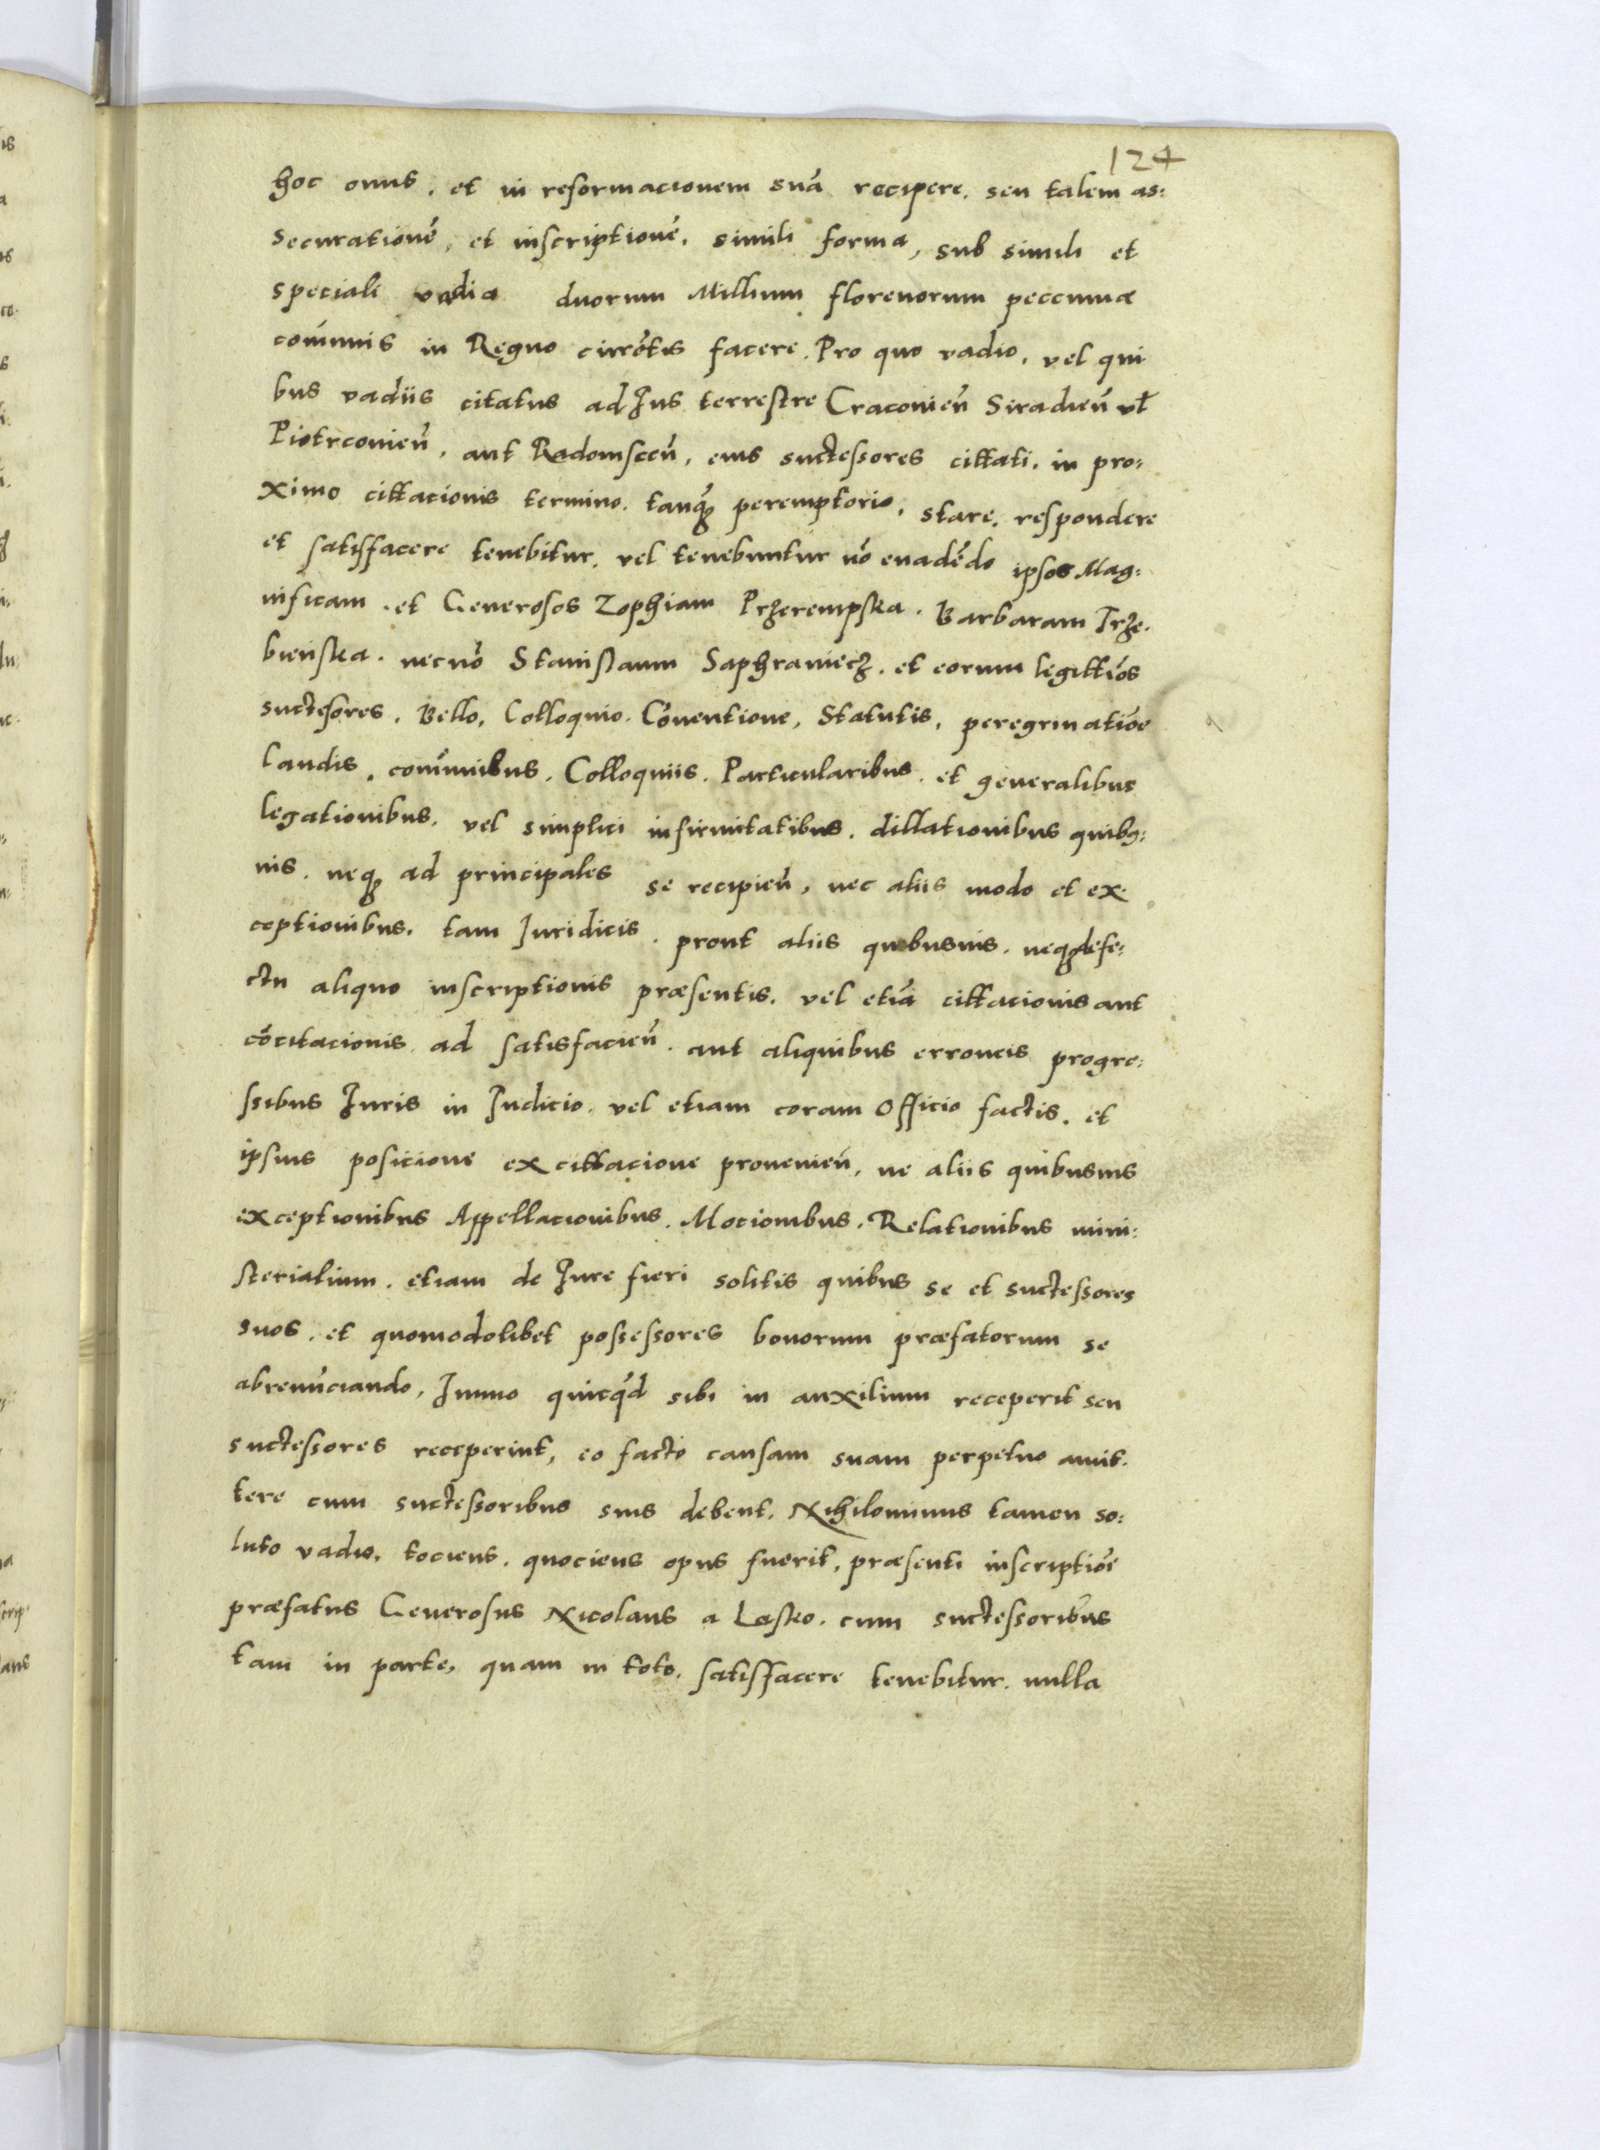 124
hoc onus. et in reformacionem suã recipere. seu talem as:
securationẽ, et inscriptionẽ. simili forma, sub simili et
speciali vadio duorum Millium florenorum peccuniæ
com̃unis in Regno currẽtis facere. Pro quo vadio. vel qui
bus vadiis citatus ad Jus terrestre Cracovieñ Siradieñ vl̃
Piotrcovieñ. aut Radomsceñ, eius sucčessores cittati. in pro:
ximo cittacionis termino. tanq̃ȝ peremptorio. stare. respondere
et satisfacere tenebitur. vel tenebuntur nõ euadẽdo ipsos Mag:
nificam. et Generosos Zophiam Przerempska. Barbaram Trze.
bienska. necnõ Stanislaum Saphraniecz. et eorum legittĩos
sucčesores. Bello. Colloquio. Cõventione, Statutis, peregrinatiõe
laudis. com̃unibus. Colloquiis. Particularibus. et generalibus
legationibus. vel simplici infirmitatibus. dillationibus quibq:
uis. neqȝ ad principales se recipieñ, nec aliis modo et ex
ceptionibus. tam Juridicis. prout aliis quibusuis. neqȝ defe:
ctu aliquo inscriptionis præsentis. vel etiã cittacionis aut
cõcitacionis ad satisfacieñ. aut aliquibus erroneis progre:
ssibus Juris in Judicio. vel etiam coram Officio factis. et
ipsius posicione ex cittacione provenieñ, ne aliis quibusuis
exceptionibus Appellacionibus. Mocionibus. Relationibus mini:
sterialium. etiam de Jure fieri solitis quibus se et sucčessores
suos. et quomodolibet possessores bonorum præfatorum se
abrenũciando, Immo quicq̃d sibi in auxilium receperit seu
sucčessores receperint, eo facto causam suam perpetuo amit.
tere cum sucčessoribus suis debent. Nihilominus tamen so:
luto vadio. tociens. quociens opus fuerit, præsenti inscriptiõe
præfatus Generosus Nicolaus a Lasko. cum sucčessoribus
tam in parte, quam in toto. satisfacere tenebitur. nulla